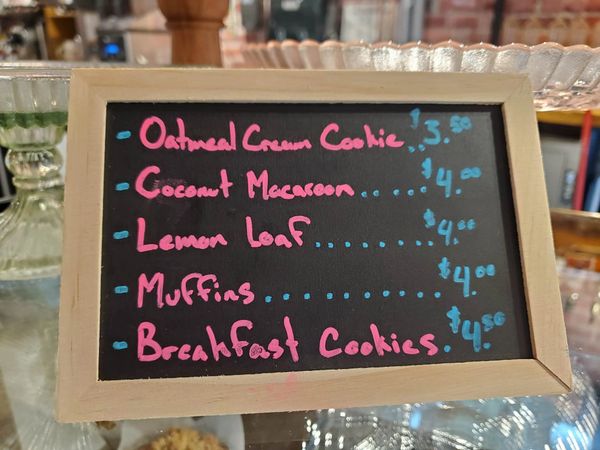 - Oatmeal Cream Cookie..$3.50
- Coconut Macaroon.....$4.00
- Lemon Loaf........$4.00
- Muffins...........$4.00
- Breakfast Cookies.$4.50